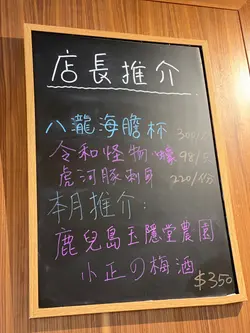 店長推介
八瀧海膽杯 300/
令和怪物蠔 98/
虎河豚刺身 220/份
本月推介:
鹿兒島玉隱堂農園
小正の梅酒
$350